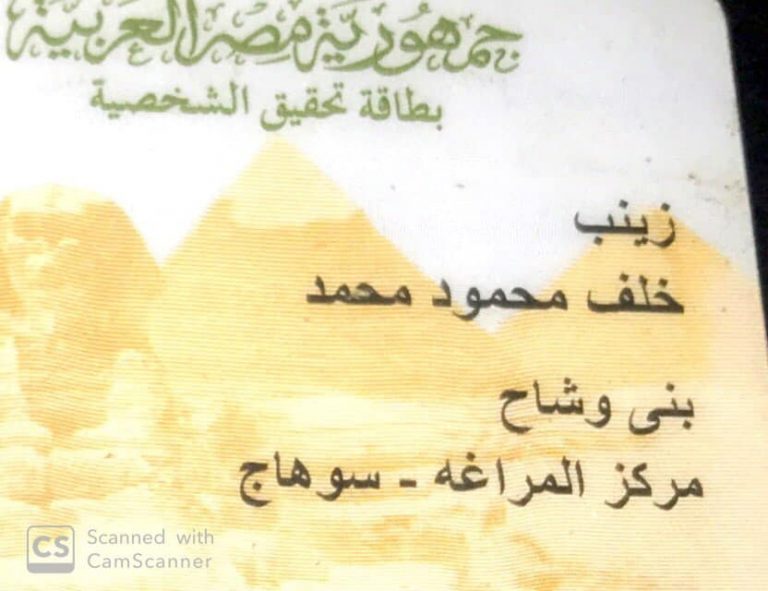 جمهورية مصر العربية
بطاقة تحقيق الشخصية
زينب
خلف محمود محمد
بنى وشاح
مركز المراغه - سوهاج
CS Scanned with
CamScanner